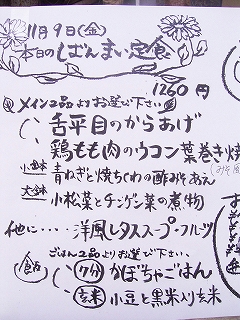 11月9日(金)
本日のしぜんまい定食
1260円
メイン2品よりお選び下さい
舌平目のからあげ
鶏もも肉のウコン葉巻き焼
(みそ風
小鉢 青ねぎと焼ちくわの酢みそあえ
大鉢 小松菜とチンゲン菜の煮物
他に・・・・洋風レタススープ・フルーツ
ごはん2品よりお選び下さい、
7分 かぼちゃごはん
玄米 小豆と黒米入り玄米